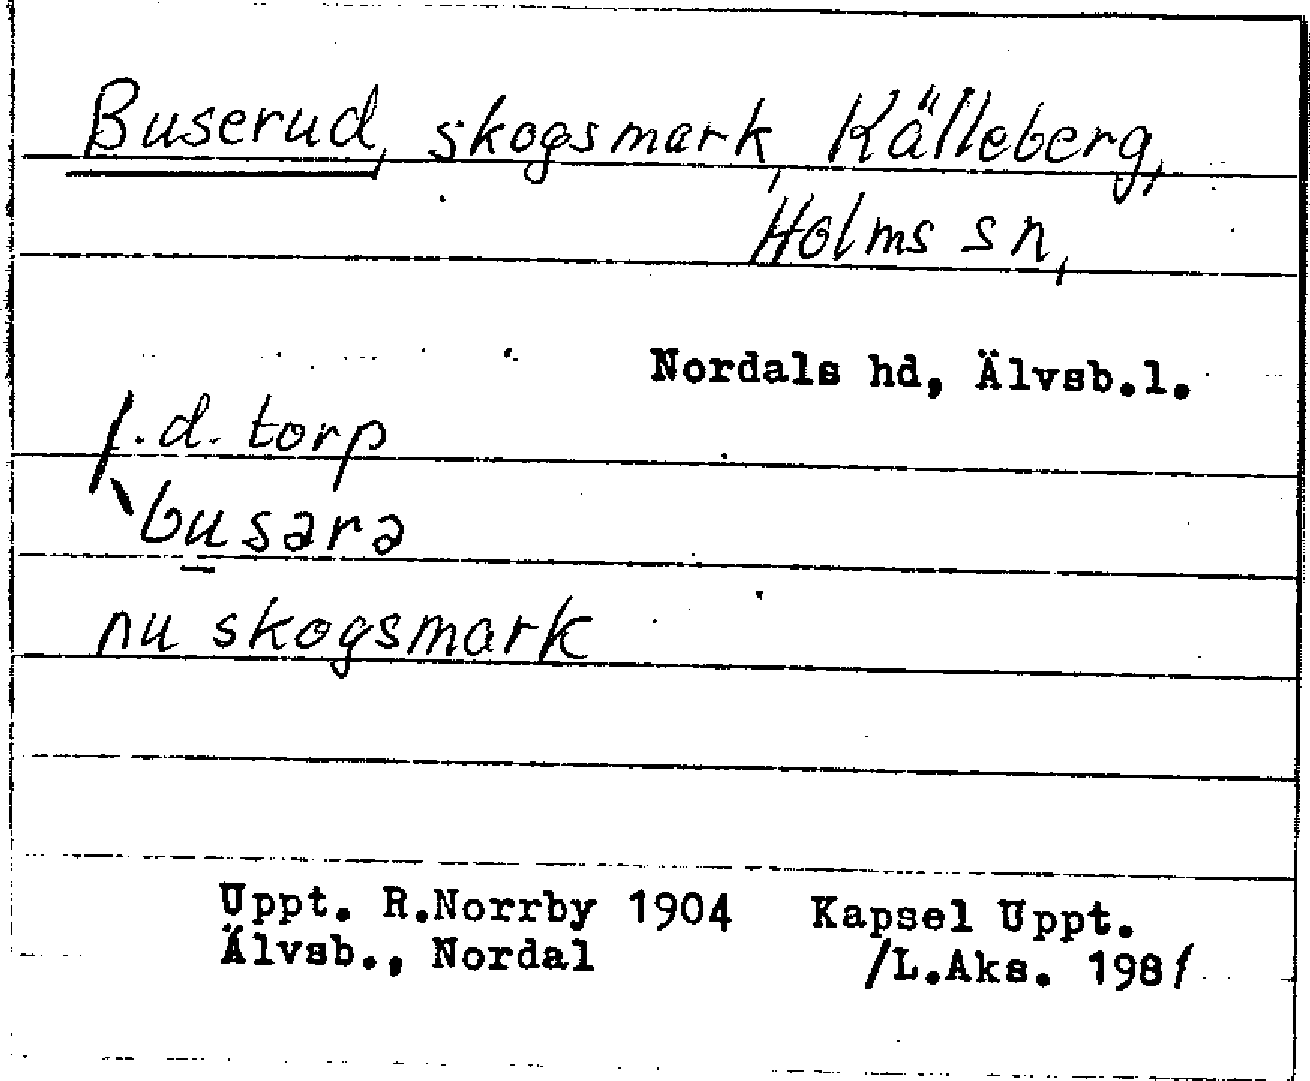 Buserud, skogsmark, Källeberg,
Holms sn,
Nordals hd, Älvsb.l.
f.d. torp
`busara
nu skogsmark
Uppt. R.Norrby 1904 Kapsel Uppt.
Älvsb., Nordal /L.Aks. 1981